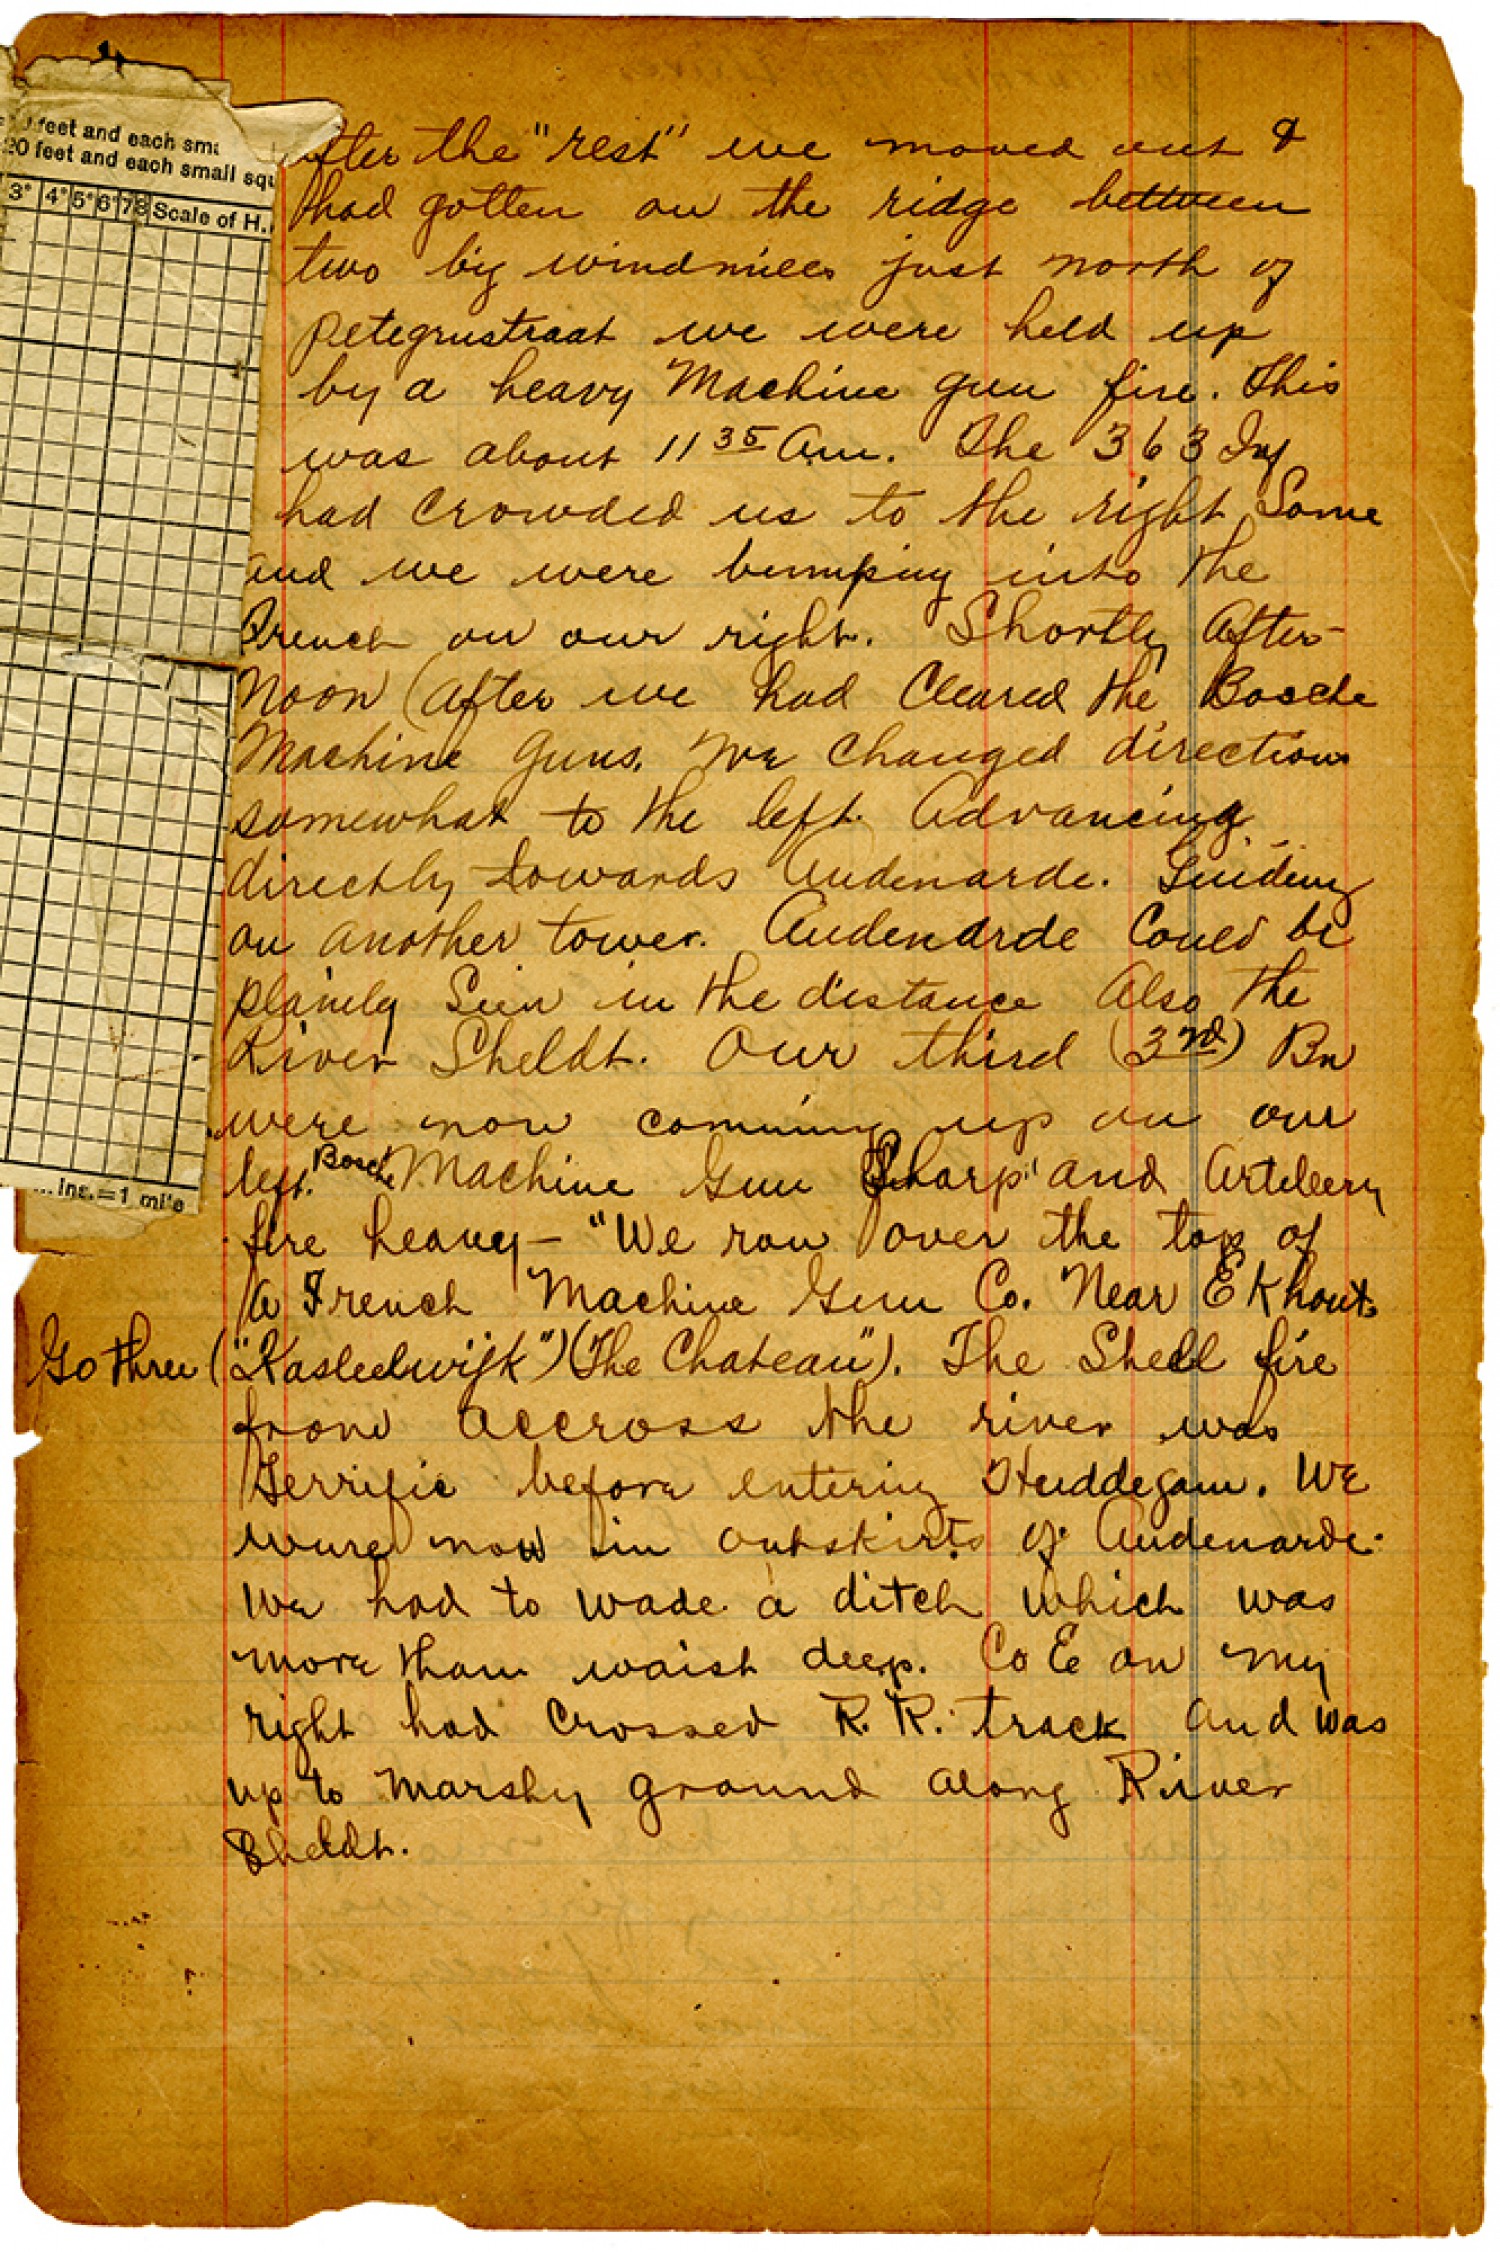 feet and each sma
20 feet and each small squ
3° 4° 5° 6° 7° 8 Scale of H.
ins.=1 mile
After the "rest" we moved out &
had gotten on the ridge between
two big windmills just north of
Petegrustraat we were held up
by a heavy Machine gun fire. This
was about 11 35 Am. The 363 Inf
had crowded us to the right Some
and we were bumping into the
French on our right. Shortly After-
Noon (after we had Cleared the Bosche
Machine Guns. We changed direction
somewhat to the left. Advancing
directly towards Audenarde. Guiding
on another tower. Audenarde Could be
plainly Seen in the distance Also the
River Sheldt. Our third (3rd) Bn
were now comming up on our
left. Bosche Machine Gun Sharp" and Artillery
fire heavy - "We ran over the top of
A French Machine Gun Co. Near Ekhout.
Go three ("Kasteelwijk") (The Chateau"). The Shell fire
from accross the river was
Terrific before entering Huddegam. We
were now in outskirts of Audenarde.
We had to wade a ditch which was
more than waist deep. Co E on my
right had Crossed R.R. track and was
up to Marshy ground along River
Sheldt.